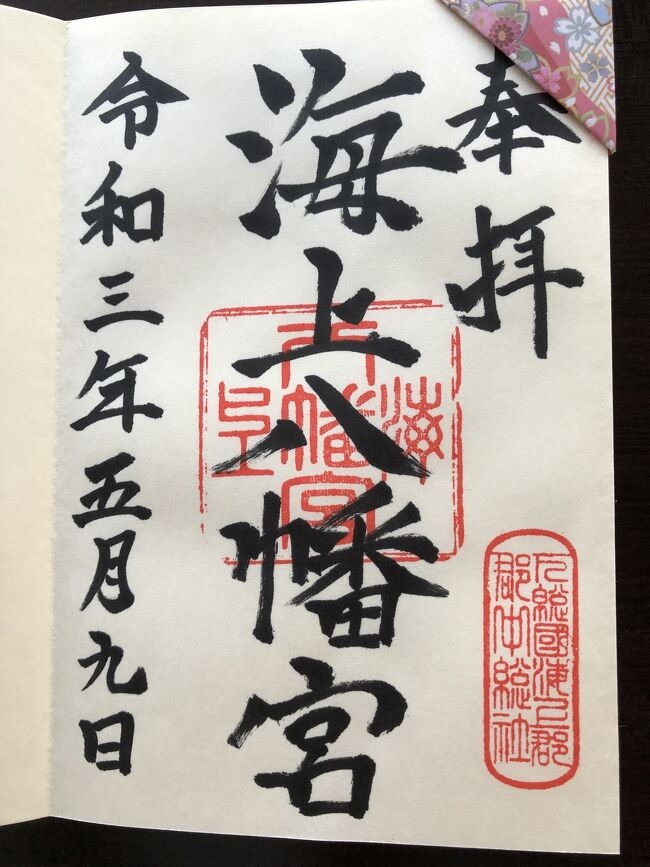 奉拝
下総國海上郡
郡中総社
海上八幡宮
令和三年五月九日